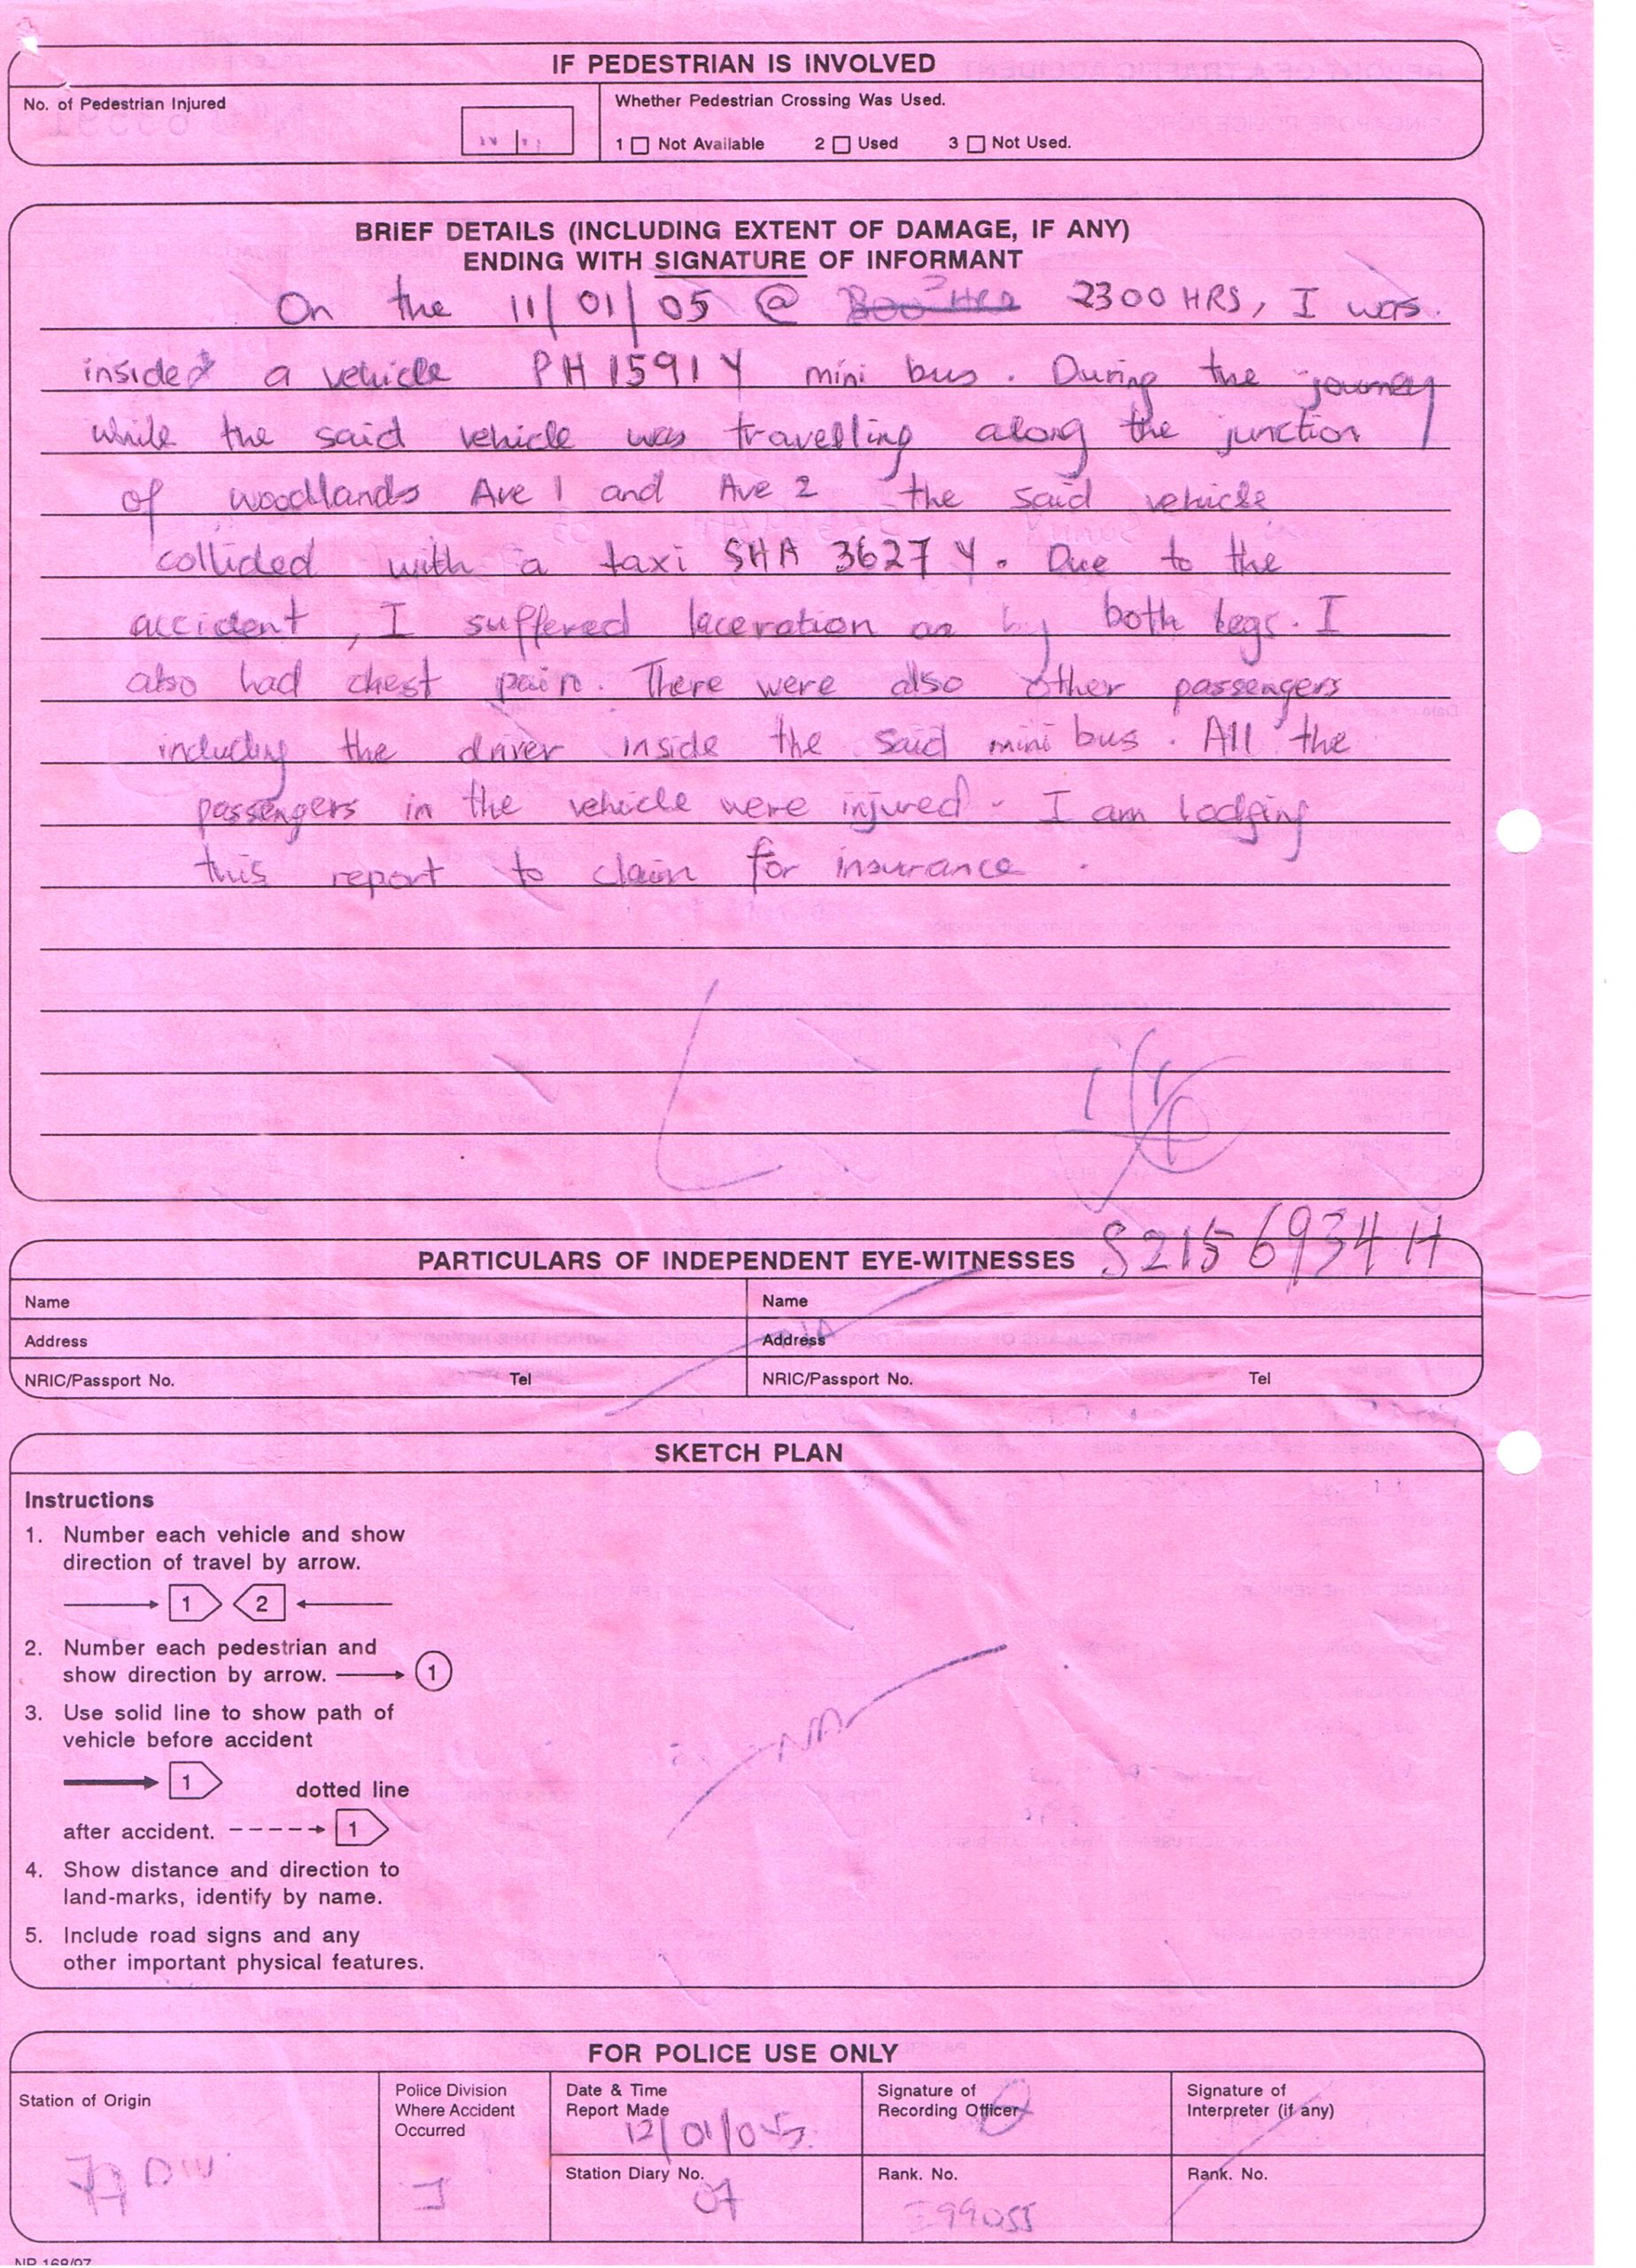 IF PEDESTRIAN IS INVOLVED
No. of Pedestrian Injured
Whether Pedestrian Crossing Was Used.
1 Not Available 2 Used 3 Not Used.
BRIEF DETAILS (INCLUDING EXTENT OF DAMAGE, IF ANY)
ENDING WITH SIGNATURE OF INFORMANT
On the 11/01/05 @ 2300 HRS, I was
inside a vehicle PH 1591 Y mini bus. During the journey
while the said vehicle was travelling along the junction
of woodlands Ave 1 and Ave 2 the said vehicle
collided with a taxi SHA 3627 Y. Due to the
accident, I suffered laceration on both legs. I
also had chest pain. There were also other passengers
including the driver inside the said mini bus. All the
passengers in the vehicle were injured. I am lodging
this report to claim for insurance.
S2156934H
PARTICULARS OF INDEPENDENT EYE-WITNESSES
Name Name
N/A
Address Address
NRIC/Passport No. Tel NRIC/Passport No. Tel
SKETCH PLAN
Instructions
1. Number each vehicle and show
direction of travel by arrow.
1 2
2. Number each pedestrian and
show direction by arrow. 1
3. Use solid line to show path of
vehicle before accident
NA
1 dotted line
after accident. 1
4. Show distance and direction to
land-marks, identify by name.
5. Include road signs and any
other important physical features.
FOR POLICE USE ONLY
Station of Origin
Police Division
Where Accident
Occurred
J
Date & Time
Report Made
12/01/05
Station Diary No.
07
Signature of
Recording Officer
Rank. No.
Signature of
Interpreter (if any)
Rank. No.
NP 168/97